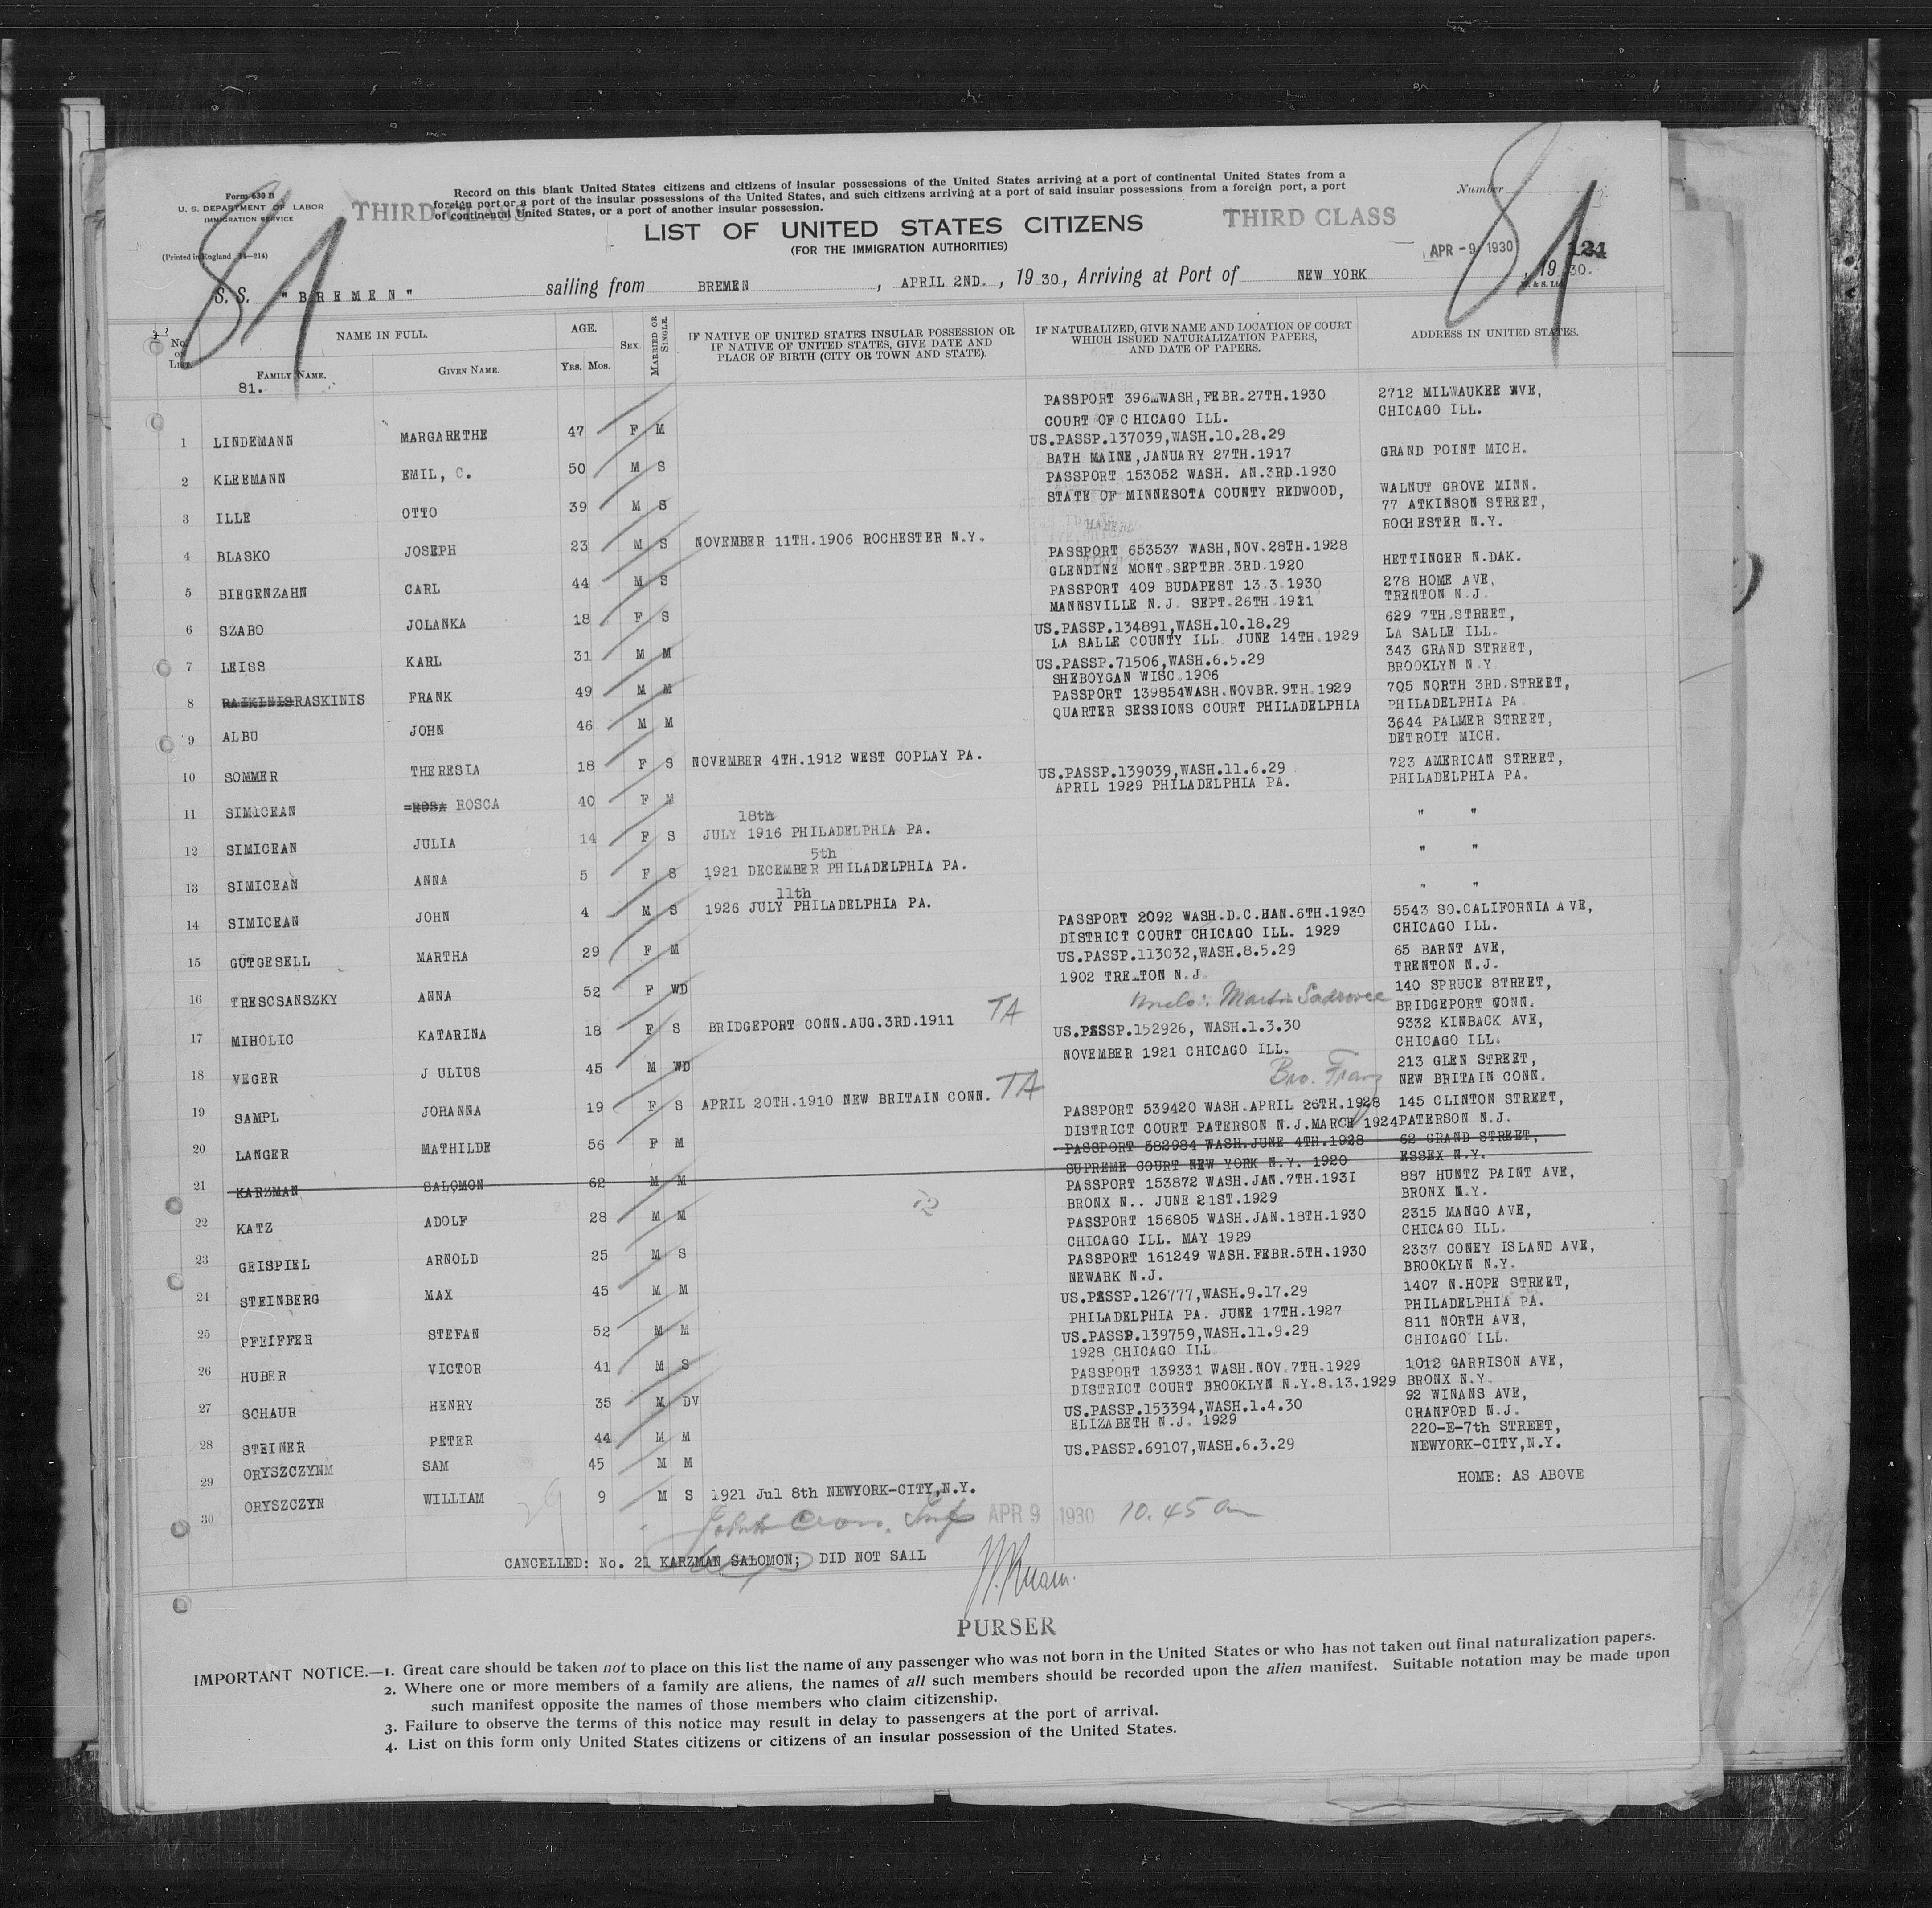 Form 630 B
U. S. DEPARTMENT OF LABOR
IMMIGRATION SERVICE
(Printed in England 14—214)
THIRD CLASS
Record on this blank United States citizens and citizens of insular possessions of the United States arriving at a port of continental United States from a
foreign port or a port of the insular possessions of the United States, and such citizens arriving at a port of said insular possessions from a foreign port, a port
of continental United States, or a port of another insular possession.
THIRD CLASS
Number
81
81
LIST OF UNITED STATES CITIZENS
(FOR THE IMMIGRATION AUTHORITIES)
APR -9 1930
124
S. S. "BREMEN" sailing from BREMEN, APRIL 2ND., 1930, Arriving at Port of NEW YORK, 1930.
No. on List. NAME IN FULL. AGE. Sex. MARRIED OR SINGLE. IF NATIVE OF UNITED STATES INSULAR POSSESSION OR IF NATIVE OF UNITED STATES, GIVE DATE AND PLACE OF BIRTH (CITY OR TOWN AND STATE). IF NATURALIZED, GIVE NAME AND LOCATION OF COURT WHICH ISSUED NATURALIZATION PAPERS, AND DATE OF PAPERS. ADDRESS IN UNITED STATES.
FAMILY NAME. GIVEN NAME. Yrs. Mos.
81.
PASSPORT 396 WASH,FEBR.27TH.1930 2712 MILWAUKEE AVE,
COURT OF CHICAGO ILL. CHICAGO ILL.
1 LINDEMANN MARGARETHE 47 F M
US.PASSP.137039,WASH.10.28.29
BATH MAINE,JANUARY 27TH.1917 GRAND POINT MICH.
2 KLEEMANN EMIL, C. 50 M S
PASSPORT 153052 WASH. AN.3RD.1930
STATE OF MINNESOTA COUNTY REDWOOD, WALNUT GROVE MINN.
3 ILLE OTTO 39 M S
77 ATKINSON STREET,
ROCHESTER N.Y.
4 BLASKO JOSEPH 23 M S NOVEMBER 11TH.1906 ROCHESTER N.Y.
PASSPORT 653537 WASH,NOV.28TH.1928
GLENDINE MONT.SEPTBR.3RD.1920 HETTINGER N.DAK.
5 BIEGENZAHN CARL 44 M S
PASSPORT 409 BUDAPEST 13.3.1930 278 HOME AVE,
MANNSVILLE N.J. SEPT.26TH.1911 TRENTON N.J.
6 SZABO JOLANKA 18 F S
US.PASSP.134891,WASH.10.18.29 629 7TH.STREET,
LA SALLE COUNTY ILL. JUNE 14TH.1929 LA SALLE ILL.
7 LEISS KARL 31 M M
US.PASSP.71506,WASH.6.5.29 343 GRAND STREET,
SHEBOYGAN WISC.1906 BROOKLYN N.Y.
8 RAIKINIS RASKINIS FRANK 49 M M
PASSPORT 139854WASH.NOVBR.9TH.1929 705 NORTH 3RD.STREET,
QUARTER SESSIONS COURT PHILADELPHIA PHILADELPHIA PA.
9 ALBU JOHN 46 M M
3644 PALMER STREET,
DETROIT MICH.
10 SOMMER THERESIA 18 F S NOVEMBER 4TH.1912 WEST COPLAY PA.
US.PASSP.139039,WASH.11.6.29 723 AMERICAN STREET,
APRIL 1929 PHILADELPHIA PA. PHILADELPHIA PA.
11 SIMICEAN ROSA ROSCA 40 F M
18th " "
12 SIMICEAN JULIA 14 F S JULY 1916 PHILADELPHIA PA.
5th " "
13 SIMICEAN ANNA 5 F S 1921 DECEMBER PHILADELPHIA PA.
11th " "
14 SIMICEAN JOHN 4 M S 1926 JULY PHILADELPHIA PA.
PASSPORT 2092 WASH.D.C.HAN.6TH.1930 5543 SO.CALIFORNIA AVE,
DISTRICT COURT CHICAGO ILL. 1929 CHICAGO ILL.
15 GUTGESELL MARTHA 29 F M
US.PASSP.113032,WASH.8.5.29 65 BARNT AVE,
1902 TRENTON N.J. TRENTON N.J.
16 TRESCSANSZKY ANNA 52 F WD
Martin 140 SPRUCE STREET,
BRIDGEPORT CONN.
17 MIHOLIC KATARINA 18 F S BRIDGEPORT CONN.AUG.3RD.1911 TA
US.PASSP.152926, WASH.1.3.30 9332 KINBACK AVE,
NOVEMBER 1921 CHICAGO ILL. CHICAGO ILL.
18 VEGER J ULIUS 45 M WD
Bro. Franz 213 GLEN STREET,
NEW BRITAIN CONN.
19 SAMPL JOHANNA 19 F S APRIL 20TH.1910 NEW BRITAIN CONN. TA
PASSPORT 539420 WASH.APRIL 26TH.1928 145 CLINTON STREET,
DISTRICT COURT PATERSON N.J.MARCH 1924 PATERSON N.J.
20 LANGER MATHILDE 56 F M
PASSPORT 582984 WASH.JUNE 4TH.1928 62 GRAND STREET,
SUPREME COURT NEW YORK N.Y. 1920 ESSEX N.Y.
21 KARZMAN SALOMON 62 M M
PASSPORT 153872 WASH.JAN.7TH.1931 887 HUNTZ PAINT AVE,
BRONX N.. JUNE 21ST.1929 BRONX N.Y.
22 KATZ ADOLF 28 M M
PASSPORT 156805 WASH.JAN.18TH.1930 2315 MANGO AVE,
CHICAGO ILL. MAY 1929 CHICAGO ILL.
23 GEISPIEL ARNOLD 25 M S
PASSPORT 161249 WASH.FEBR.5TH.1930 2337 CONEY ISLAND AVE,
NEWARK N.J. BROOKLYN N.Y.
24 STEINBERG MAX 45 M M
US.PASSP.126777,WASH.9.17.29 1407 N.HOPE STREET,
PHILADELPHIA PA. JUNE 17TH.1927 PHILADELPHIA PA.
25 PFEIFFER STEFAN 52 M M
US.PASSP.139759,WASH.11.9.29 811 NORTH AVE,
1928 CHICAGO ILL CHICAGO ILL.
26 HUBER VICTOR 41 M S
PASSPORT 139331 WASH.NOV.7TH.1929 1012 GARRISON AVE,
DISTRICT COURT BROOKLYN N.Y.8.13.1929 BRONX N.Y.
27 SCHAUR HENRY 35 M DV
US.PASSP.153394,WASH.1.4.30 92 WINANS AVE,
ELIZABETH N.J. 1929 CRANFORD N.J.
28 STEINER PETER 44 M M
US.PASSP.69107,WASH.6.3.29 220-E-7th STREET,
NEWYORK-CITY,N.Y.
29 ORYSZCZYNM SAM 45 M M
HOME: AS ABOVE
30 ORYSZCZYN WILLIAM 9 M S 1921 Jul 8th NEWYORK-CITY,N.Y.
29
APR 9 1930 10.45 am
CANCELLED: No. 21 KARZMAN SALOMON; DID NOT SAIL
PURSER
IMPORTANT NOTICE.—1. Great care should be taken not to place on this list the name of any passenger who was not born in the United States or who has not taken out final naturalization papers.
2. Where one or more members of a family are aliens, the names of all such members should be recorded upon the alien manifest. Suitable notation may be made upon
such manifest opposite the names of those members who claim citizenship.
3. Failure to observe the terms of this notice may result in delay to passengers at the port of arrival.
4. List on this form only United States citizens or citizens of an insular possession of the United States.